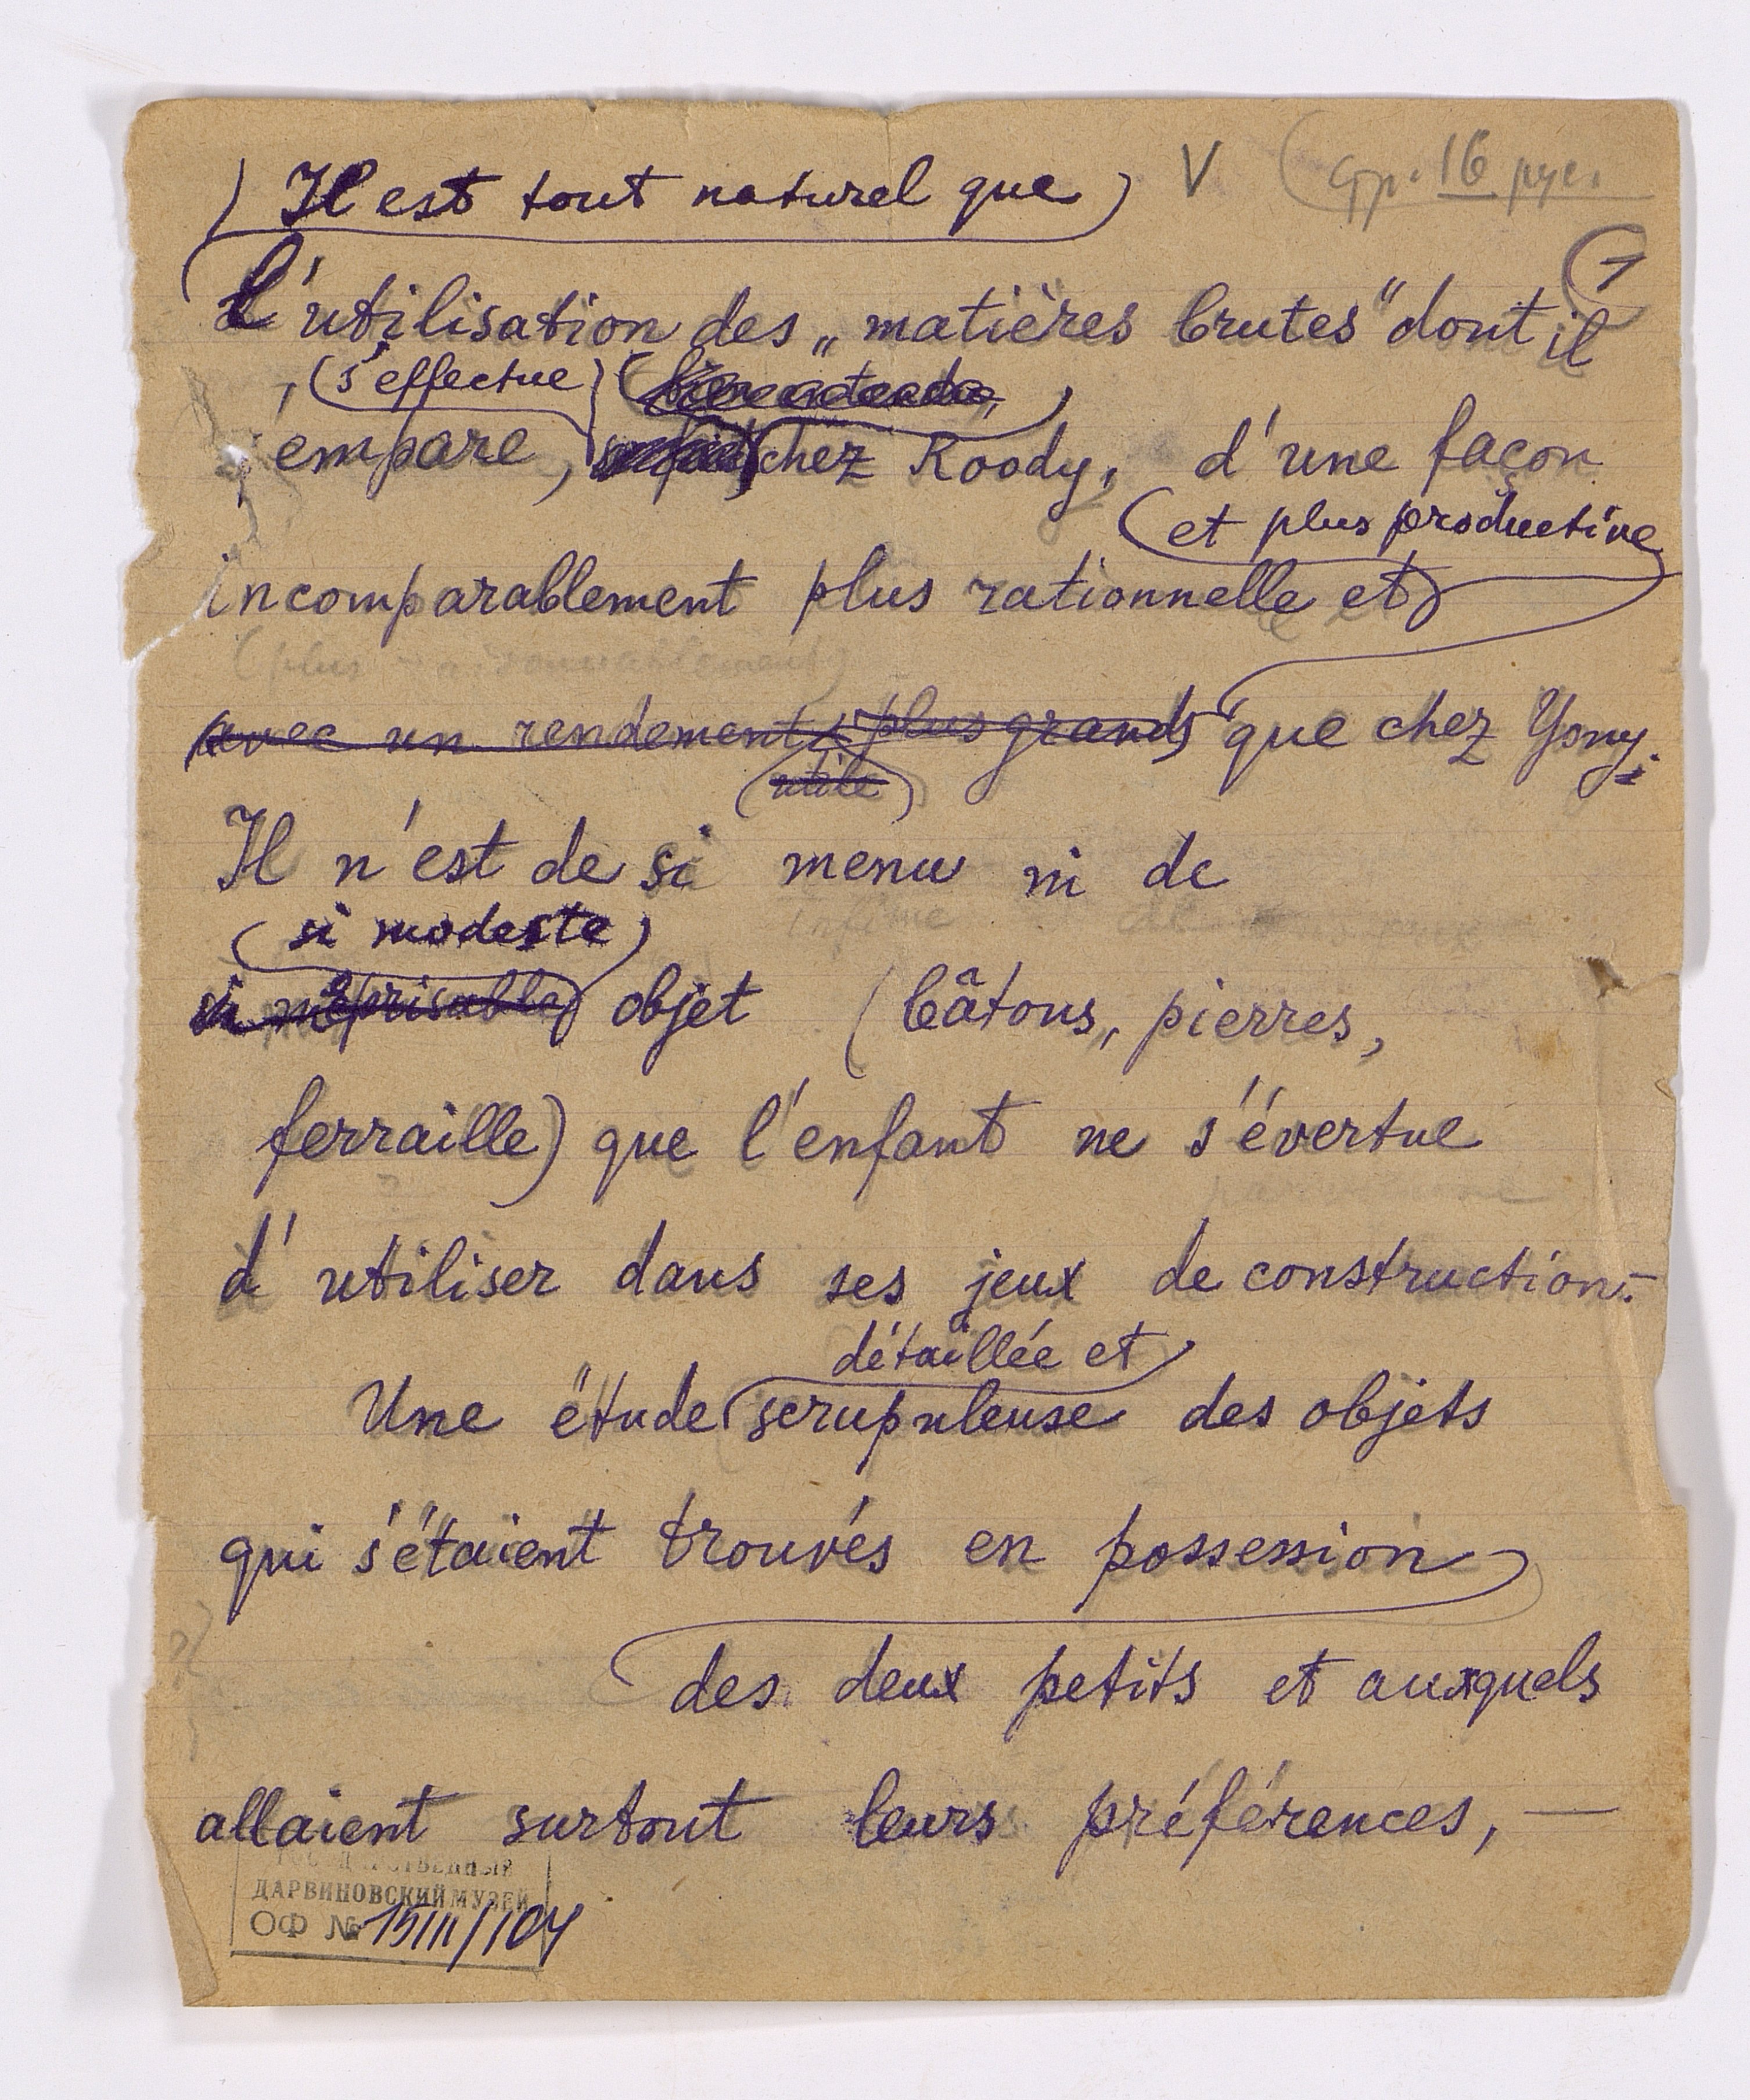 (Il est tout naturel que) V (стр. 16 рус.
1
l'utilisation des „matières brutes" dont il
(s'effectue)
s'empare, chez Roody, d'une façon
(et plus productive
incomparablement plus rationnelle et
(plus
avec un rendement plus grand que chez Yony.
utile
Il n'est de si menu ni de
infime
(si modeste)
si méprisable objet (bâtons, pierres,
ferraille) que l'enfant ne s'évertue
d'utiliser dans ses jeux de construction.
détaillée et
Une étude scrupuleuse des objets
qui s'étaient trouvés en possession
des deux petits et auxquels
allaient surtout leurs préférences, —
ГОСУДАРСТВЕННЫЙ
ДАРВИНОВСКИЙ МУЗЕЙ
ОФ № 15111/104